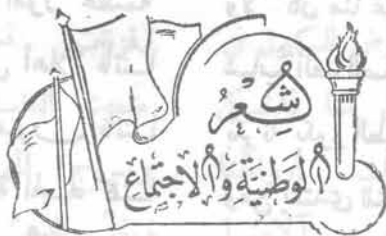 شِعْرُ
الْوَطَنِيَّةِ وَالاِجْتِمَاعِ